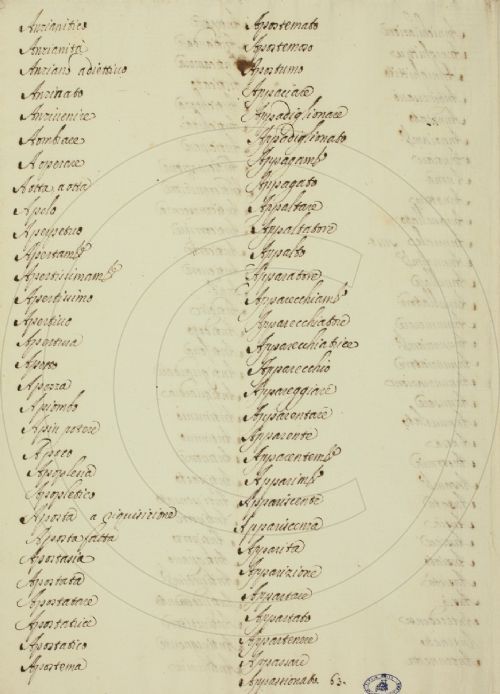 Anzianitico
Anzianità
Anziano adiettivo
Anzinato
Aombrare
Aoperare
Aotta aotta
Apelo
Aperpetuo
Apertamte
Apertissimamte
Apertissimo
Apertivo
Apertura
Apezza
Apiombo
Apiu potere
Apoco
Apoplesia
Apopletico
Aposta a riquisizione
Aposta fatta
Apostasia
Apostata
Apostatare
Apostatrice
Apostatico
Apostema
Apostemato
Apostemoso
Apostumo
Appaciare
Appadiglionare
Appadiglionato
Appagamto
Appagato
Appaltare
Appaltatore
Appalto
Apparatore
Apparecchiamto
Apparecchiatore
Apparecchiatrice
Apparecchio
Appareggiare
Apparentare
Apparente
Apparentemte
Apparimto
Appariscente
Appariscenzia
Apparita
Apparizione
Appartare
Appartato
Appartenere
Appassare
Appassionato 63.